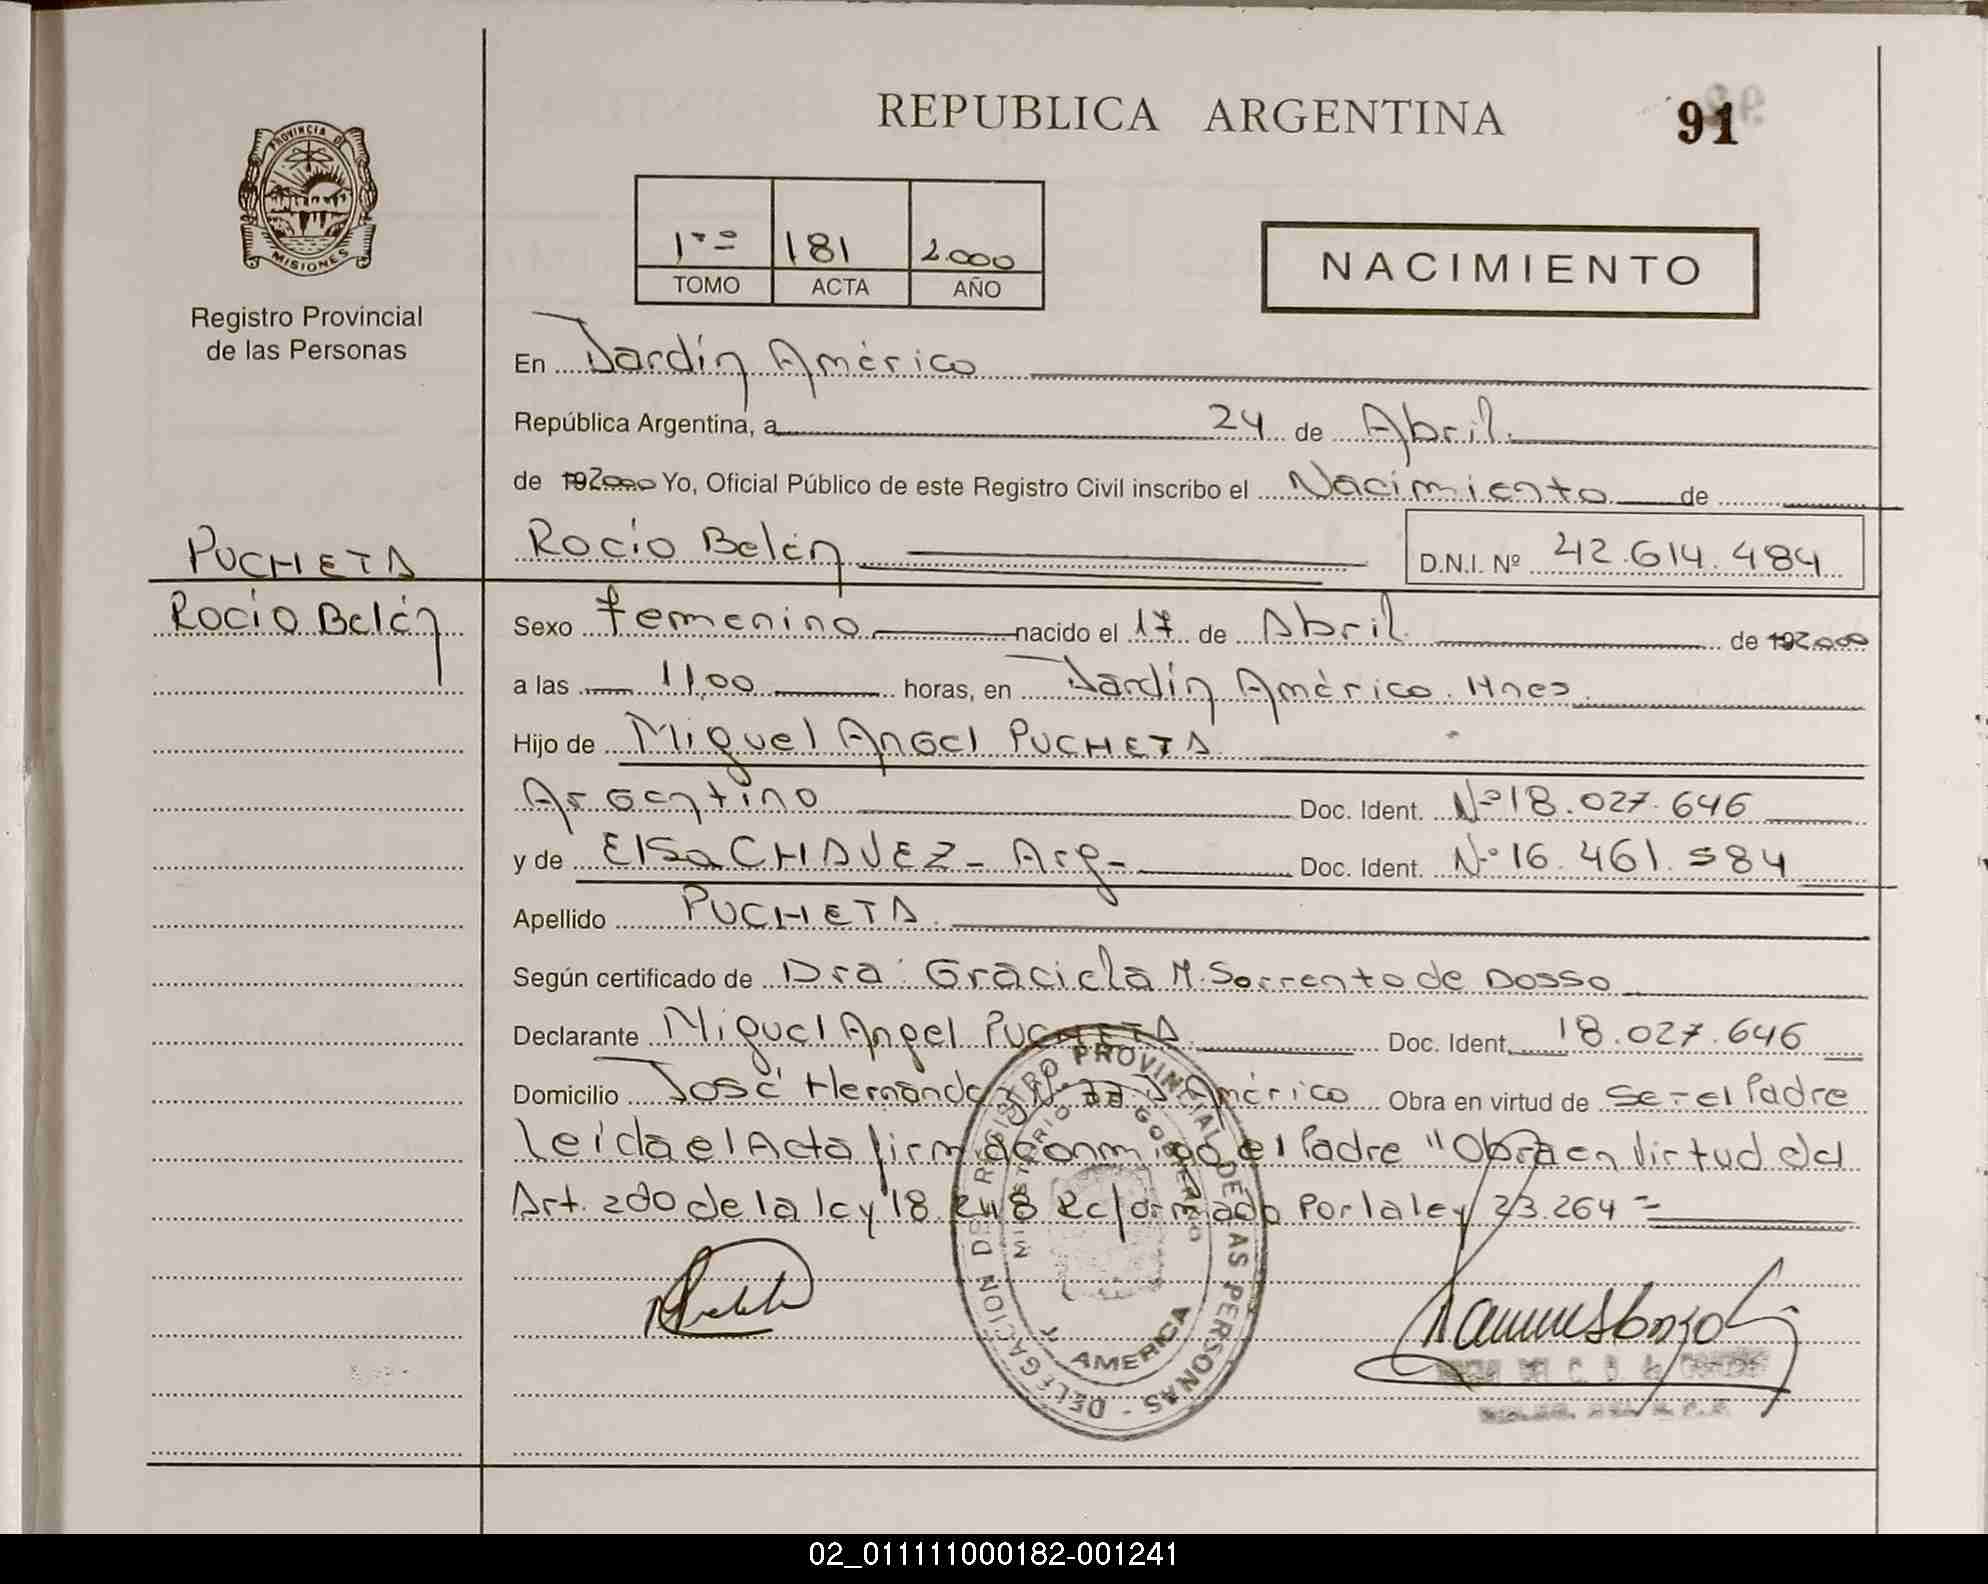 REPUBLICA ARGENTINA
91
PROVINCIA DE
MISIONES
Registro Provincial
de las Personas
1ro 181 2.000
TOMO ACTA AÑO
NACIMIENTO
En Jardín América
República Argentina, a 24 de Abril.
de 192000 Yo, Oficial Público de este Registro Civil inscribo el Nacimiento de
PUCHETA
Rocío Belén
Rocío Belén D.N.I. Nº 42.614.484
Sexo femenino nacido el 17 de Abril de 192000
a las 11,00 horas, en Jardín América. Mnes
Hijo de Miguel Angel PUCHETA
Argentino Doc. Ident. Nº 18.027.646
y de Elsa CHAVEZ - Arg- Doc. Ident. Nº 16.461.584
Apellido PUCHETA
Según certificado de Dra: Graciela M. Sorrento de Dosso
Declarante Miguel Angel PUCHETA Doc. Ident. 18.027.646
Domicilio José Hernández J. América Obra en virtud de Ser el Padre
leída el Acta firma conmigo el Padre "Obra en virtud del
Art. 280 de la ley 18.248 Reformado Por la ley 23.264 =
DELEGACION DE REGISTRO PROVINCIAL DE LAS PERSONAS
MINISTERIO DE GOBIERNO
J. AMERICA
02_011111000182-001241